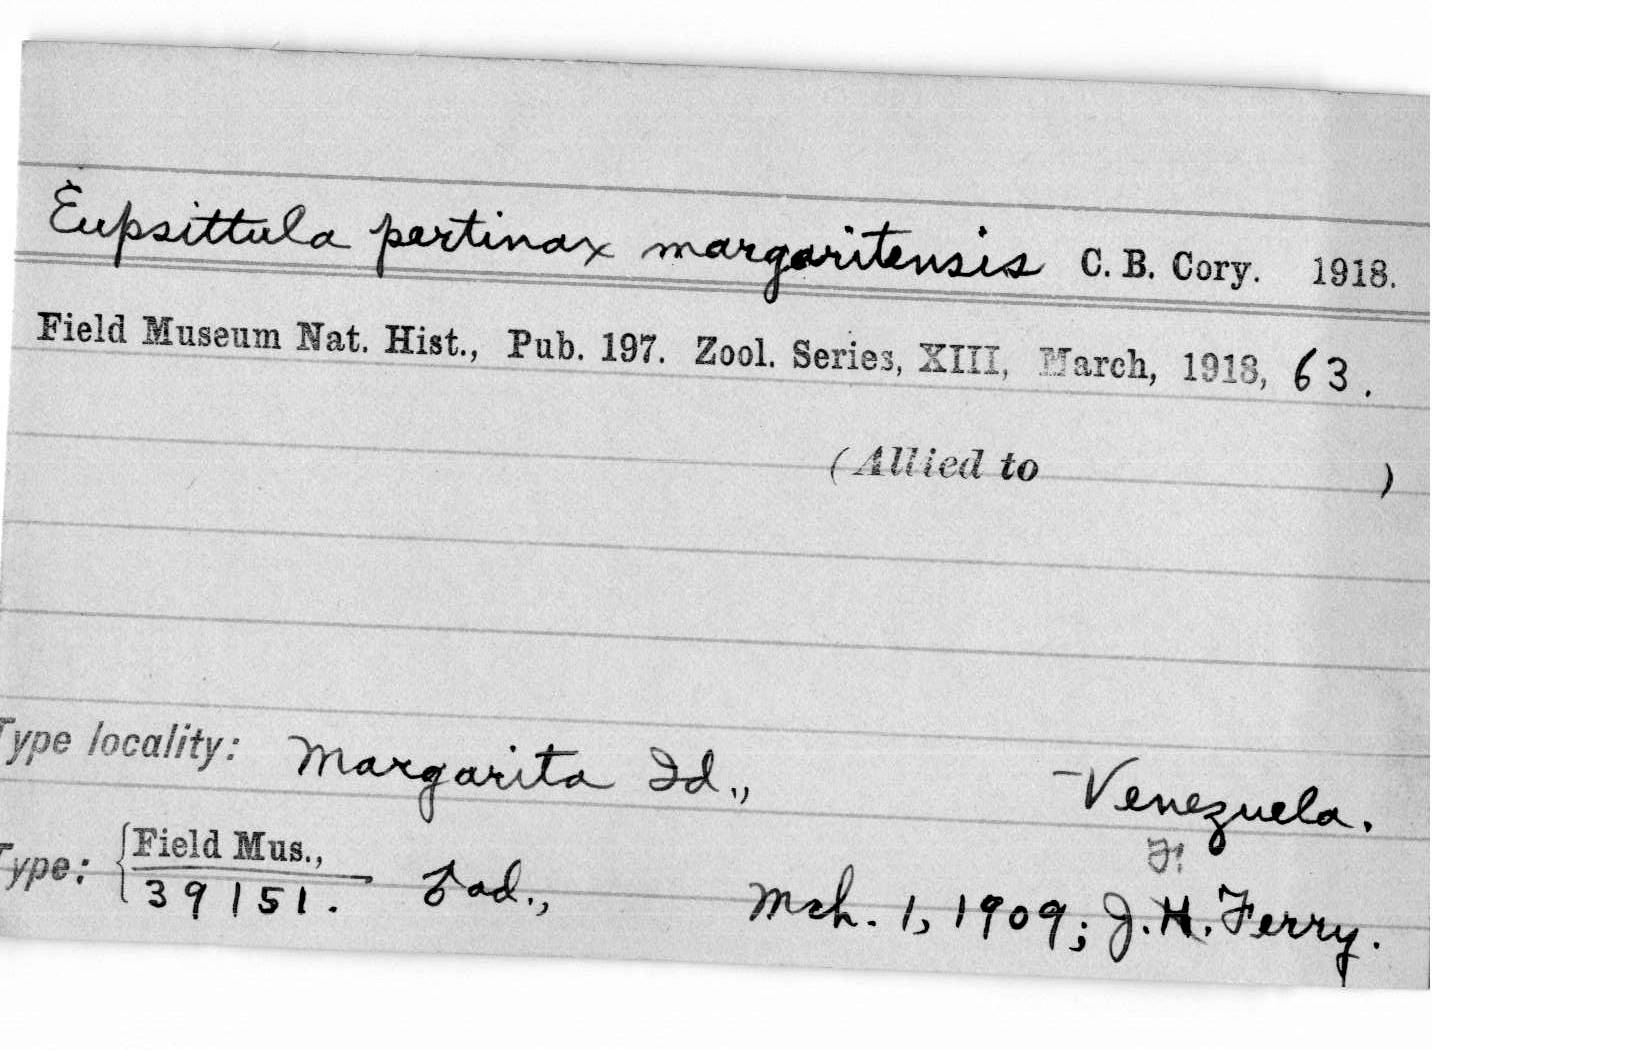 Eupsittula pertinax margaritensis C. B. Cory. 1918.
Field Museum Nat. Hist., Pub. 197. Zool. Series, XIII, March, 1918, 63.
(Allied to )
Type locality: Margarita Id., Venezuela.
Type: {Field Mus., 39151. ♂ ad., Mch. 1, 1909; J. H. Ferry.